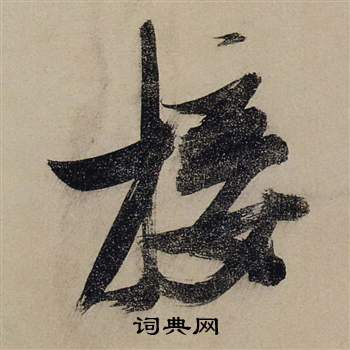 接
词典网